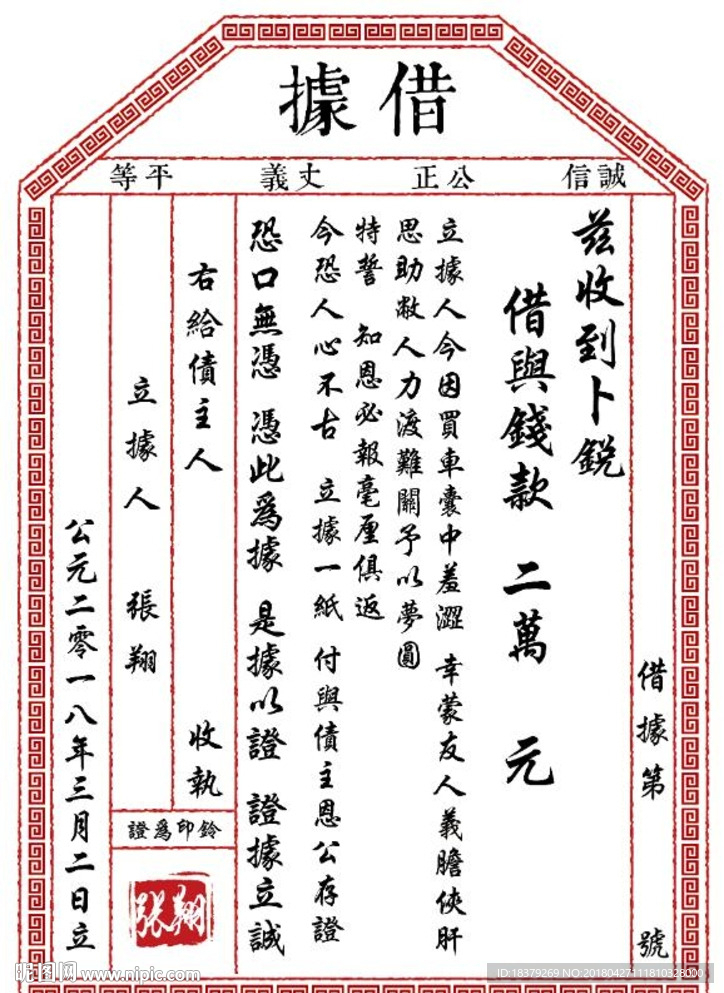 借據
誠信 公正 丈義 平等
借據第 號
茲收到卜銳
借與錢款 二萬 元
立據人今因買車囊中羞澀 幸蒙友人義膽俠肝
思助敝人力渡難關予以夢圓
特誓 知恩必報毫厘俱返
今恐人心不古 立據一紙 付與債主恩公存證
恐口無憑 憑此為據 是據以證 證據立誠
右給債主人 收執
立據人 張翔
鈐印為證
张翔
公元二零一八年三月二日立
昵图网 www.nipic.com
ID:18379269 NO:20180427111810328000